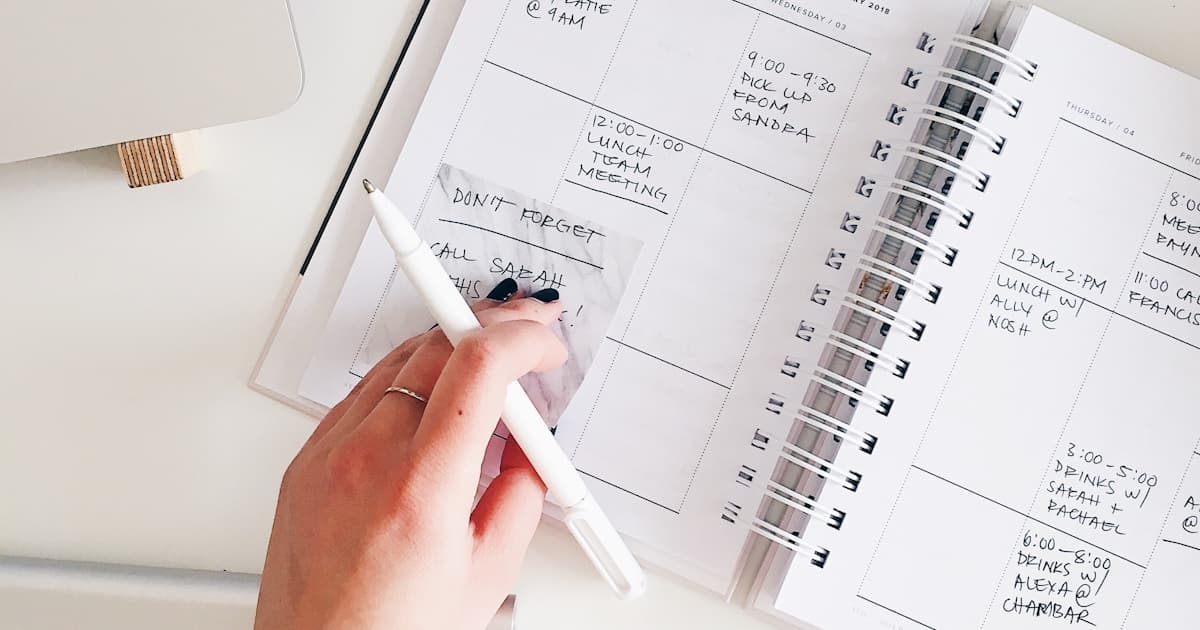 @ 9AM
2018
WEDNESDAY / 03
9:00 - 9:30
PICK UP
FROM
SANDRA
12:00-1:00
LUNCH
TEAM
MEETING
DON'T FORGET
CALL SARAH
THIS
THURSDAY / 04
12PM-2:PM
LUNCH W/
ALLY @
NOSH
8:00
11:00
3:00-5:00
DRINKS W/
SARAH +
RACHAEL
6:00-8:00
DRINKS W/
ALEXA @
CHAMBAR
@